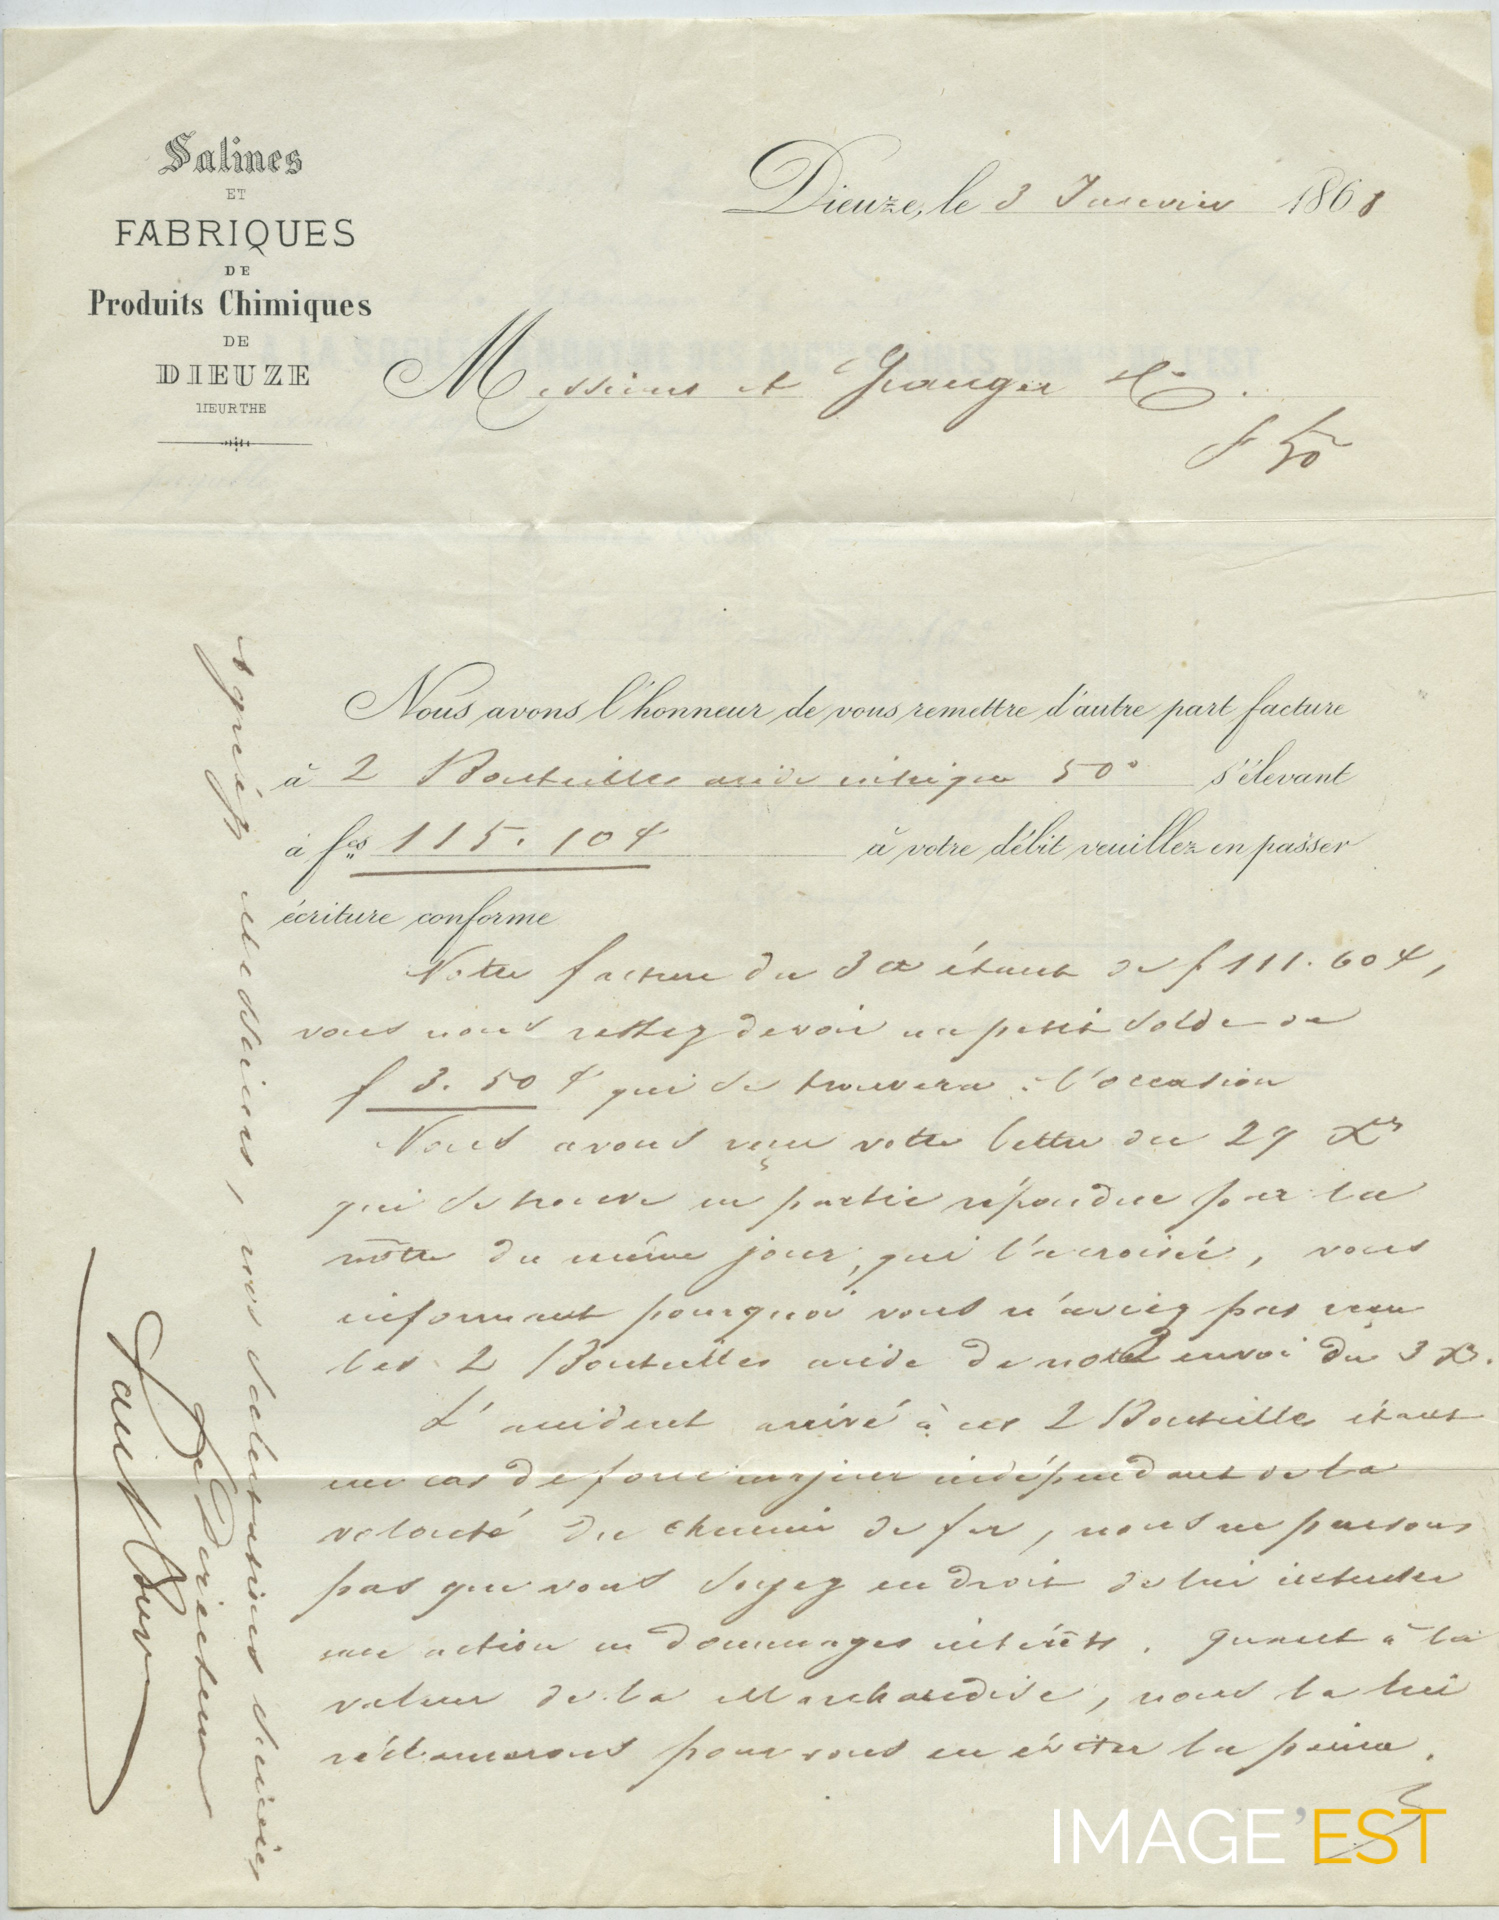 Salines
ET
FABRIQUES
DE
Produits Chimiques
DE
DIEUZE
MEURTHE
Dieuze, le 3 Janvier 1868
Messieurs et Granger &
f 50
Nous avons l'honneur de vous remettre d'autre part facture
à 2 Bouteilles acide nitrique 50° s'élevant
à fcs 115.10 à votre débit veuillez en passer
écriture conforme
Notre facture du 3 étant de f 111.60,
vous nous restez devoir un petit solde de
f 3.50 qui se trouvera à l'occasion
Nous avons reçu votre lettre du 29 Xre
qui se trouve en partie répondue par la
nôtre du même jour, qui l'a croisée, vous
informant pourquoi vous n'aviez pas reçu
les 2 Bouteilles acide de notre envoi du 3 Xre.
L'accident arrivé à ces 2 Bouteilles étant
un cas de force majeur indépendant de la
volonté du chemin de fer, nous ne pensons
pas que vous soyez en droit de lui intenter
une action en dommages intérêts. Quant à la
valeur de la Marchandise, nous la lui
réclamerons pour vous en éviter la peine.
Agréez Messieurs, nos salutations sincères
Le Directeur
IMAGE'EST